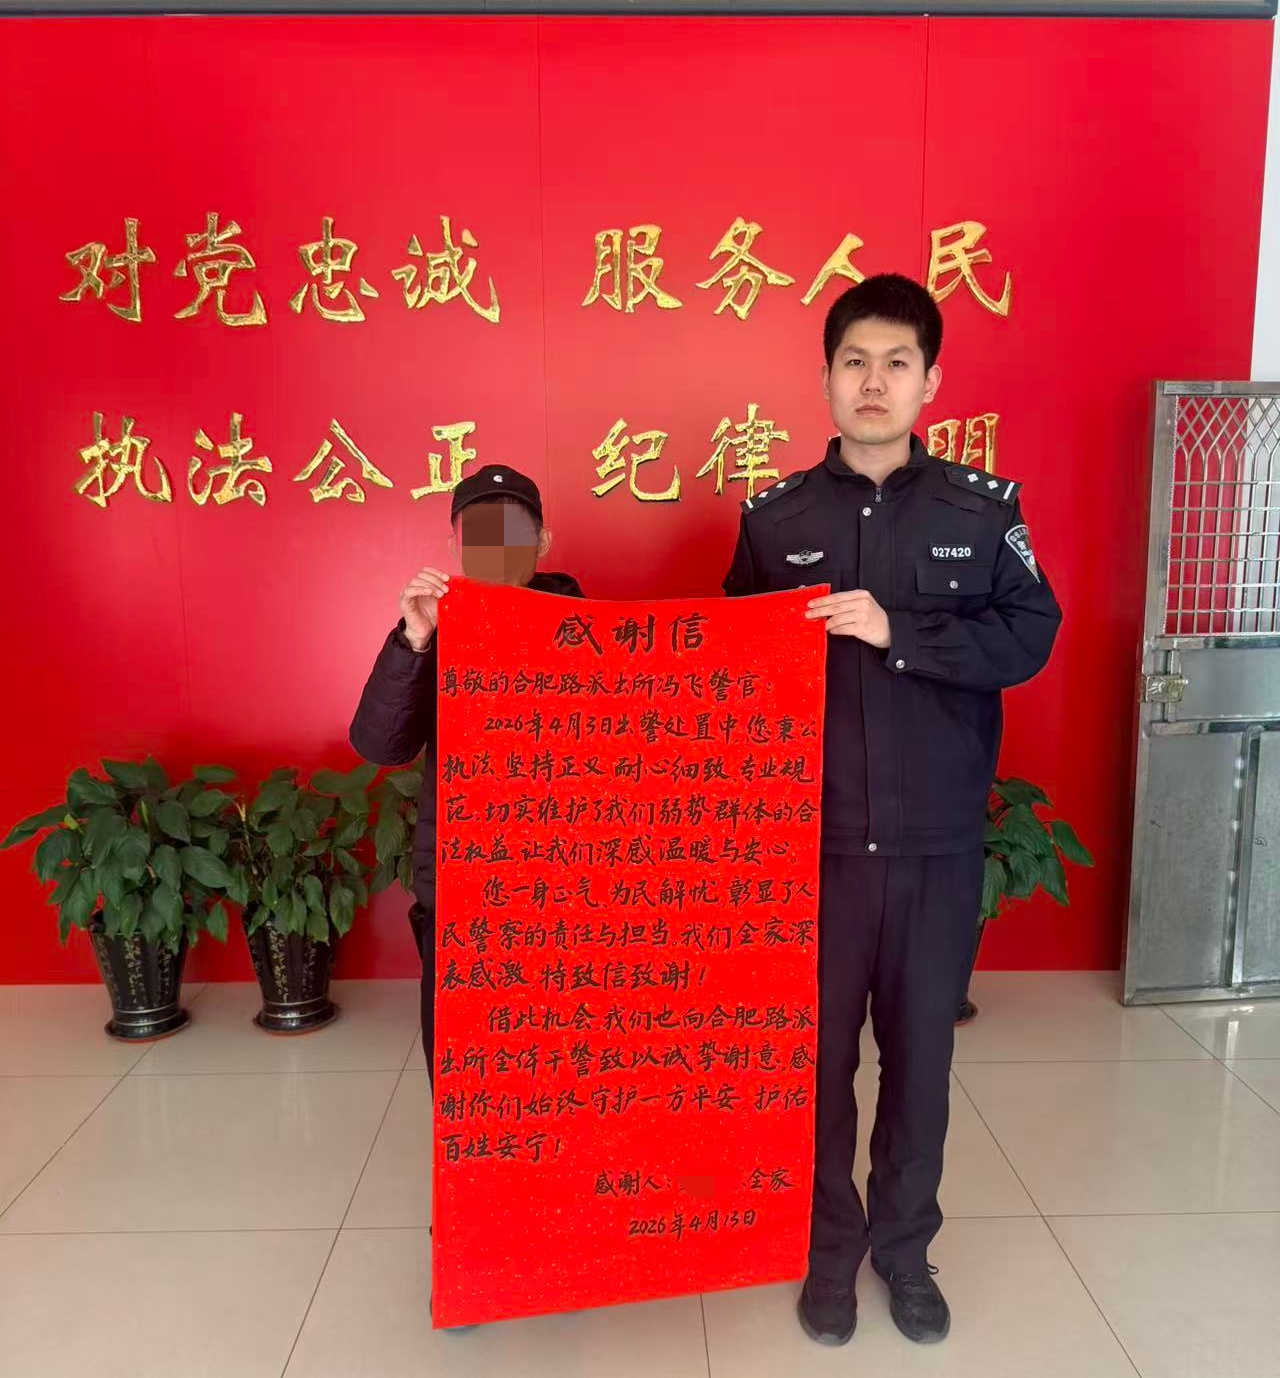 对党忠诚 服务人民
执法公正 纪律 明
027420
感谢信
尊敬的合肥路派出所冯飞警官：
2026年4月3日出警处置中,您秉公
执法、坚持正义、耐心细致、专业规
范、切实维护了我们弱势群体的合
法权益,让我们深感温暖与安心。
您一身正气、为民解忧,彰显了人
民警察的责任与担当,我们全家深
表感激,特致信致谢！
借此机会,我们也向合肥路派
出所全体干警致以诚挚谢意,感
谢你们始终守护一方平安,护佑
百姓安宁！
感谢人： 全家
2026年4月13日